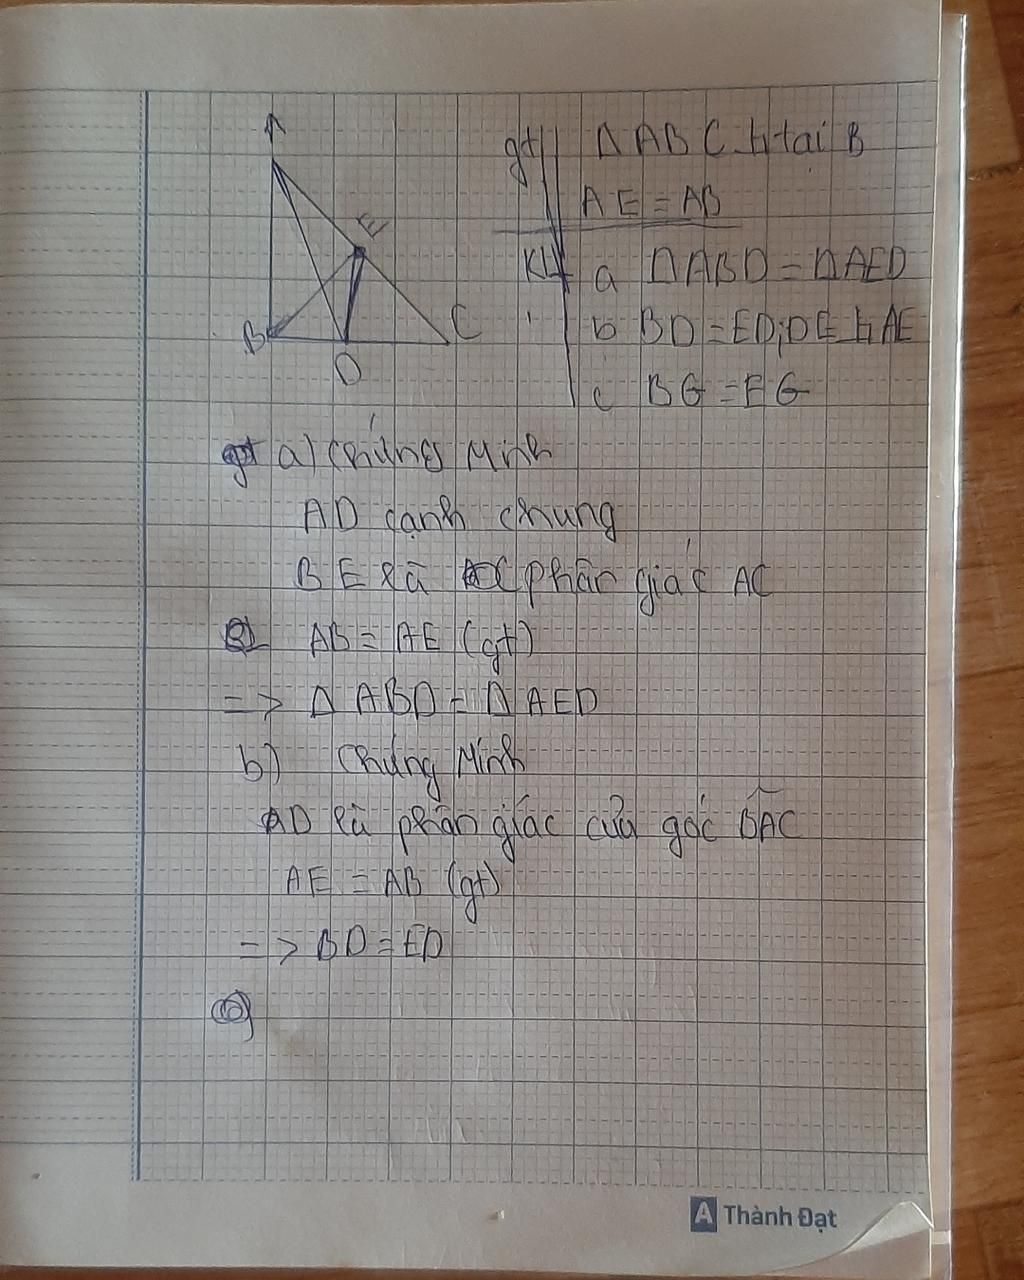 A
E
B
D
C
gt ΔABC ⊥ tại B
AE = AB
KL a ΔABD = ΔAED
b BD = ED; DE ⊥ AE
c BG = EG
a) Chứng Minh
AD cạnh chung
BE là phân giác AC
AB = AE (gt)
=> ΔABD = ΔAED
b) Chứng Minh
AD là phân giác của góc BAC
AE = AB (gt)
=> BD = ED
c)
A Thành Đạt